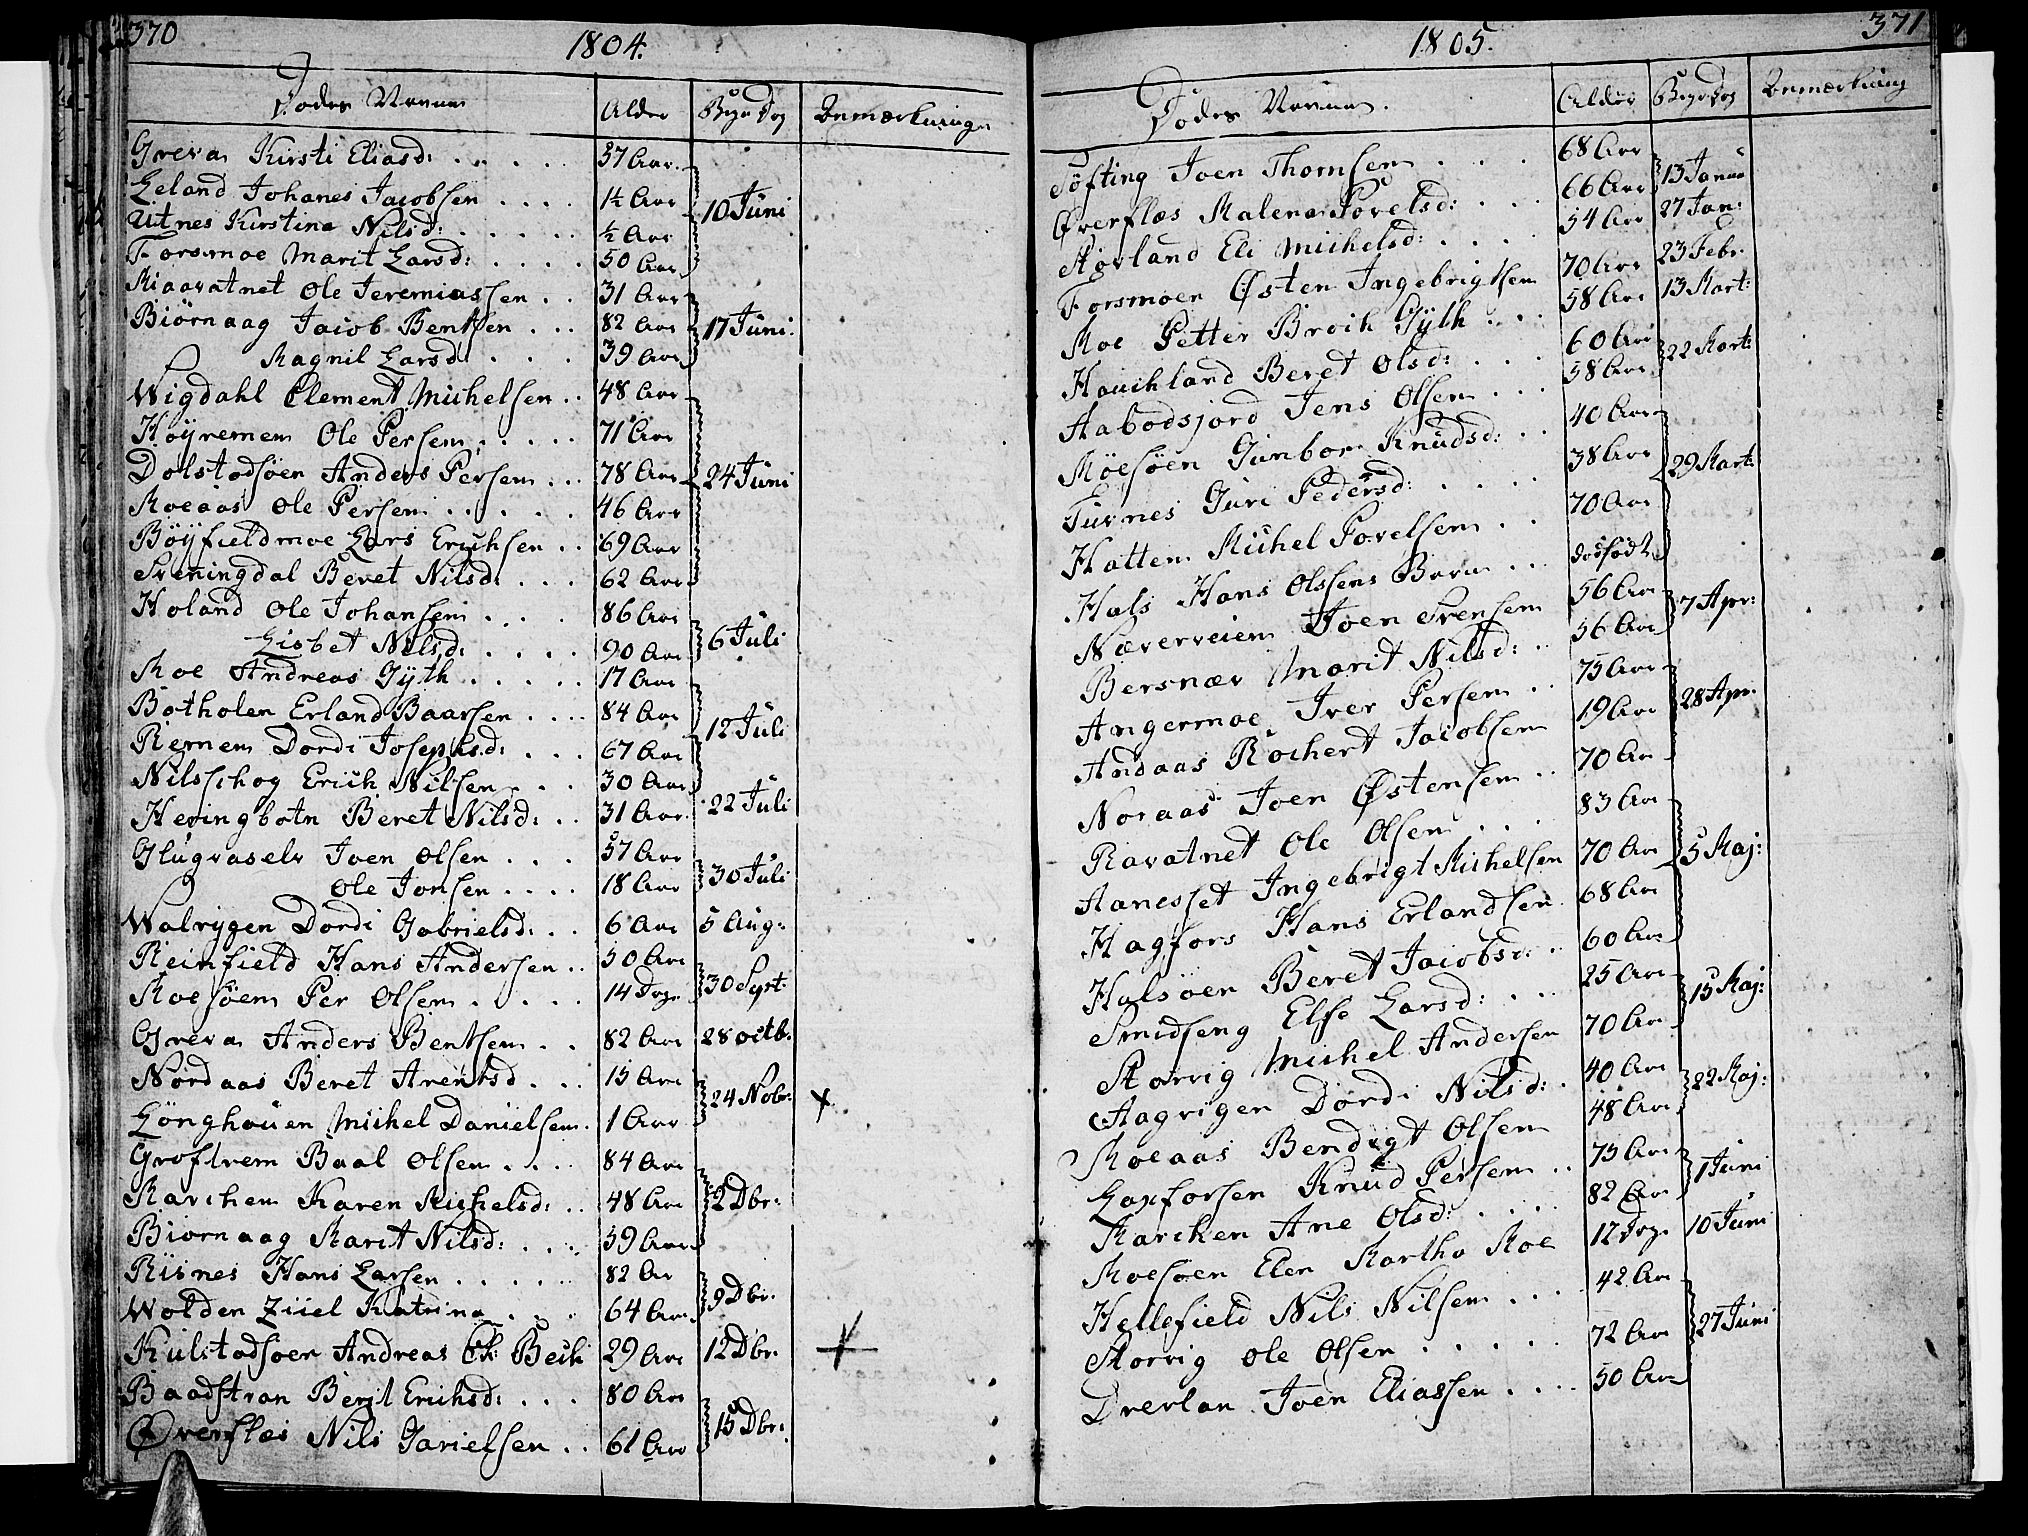 370
1804.
Dødes Navne Alder Begr: Dag Anmærkninger
Greva Kirsti Eliasd: 57 Aar
Leland Johanes Jacobsen 1½ Aar
Utnes Kirstina Nilsd: ½ Aar
10 Juni
Forsmoe Marit Larsd: 50 Aar
Kiaavatnet Ole Jeremiassen 31 Aar
Biørnaag Jacob Bentsen 82 Aar
17 Juni
Ragnil Larsd: 39 Aar
Wigdahl Clement Michelsen 48 Aar
Høyremem Ole Persen 71 Aar
Dolstadsøen Anders Persen 78 Aar
24 Juni
Moeaas Ole Persen 46 Aar
Bøyfieldmoe Lars Erichsen 69 Aar
Sveningdal Beret Nilsd: 62 Aar
Holand Ole Johansen 86 Aar
Lisbet Nilsd: 90 Aar
6 Juli
Moe Andreas Gyth 17 Aar
Botholen Erland Baarsen 84 Aar
12 Juli
Remem Dordi Josephsd: 67 Aar
Nilsschog Erich Nilsen 30 Aar
Heringbotn Beret Nilsd: 31 Aar
22 Juli
Glugvaselv Joen Olsen 57 Aar
Ole Jonsen 18 Aar
30 Juli
Walrygen Dordi Gabrielsd: 6 Aar 5 Aug:
Reinfield Hans Andersen 50 Aar
Moesøen Per Olsen 14 Dage
30 Sept:
Greva Anders Bentsen 82 Aar 28 octb:
Nordaas Beret Arentsd 15 Aar
24 Nobr: x
Lønghauen Michel Danielsen 1 Aar
Groftrem Baal Olsen 84 Aar
Marchem Karen Michelsd: 48 Aar
2 Dbr:
Biørnaag Marit Nilsd: 59 Aar
Risnes Hans Larsen 82 Aar
Wolden Ziiel Katrina 64 Aar
9 Dbr:
Kulstadsøen Andreas Ch: Bech 29 Aar 12 Dbr:
Baadstran Berit Erichsd: 80 Aar
Øverflæs Nils Jarielsen 61 Aar
15 Dbr:
371
1805.
Dødes Navne. Alder Begr: Dag Anmærkning
Tøfting Joen Thomsen 68 Aar
13 Janua
Øverflæs Malena Povelsd: 66 Aar
Storland Eli Michelsd: 54 Aar 27 Jan:
Forsmoen Østen Ingebrigtsen 70 Aar 23 Febr.
Moe Petter Broch Gyth 58 Aar 13 Mart:
Hauchland Beret Olsd: 60 Aar
22 Mart:
Aabodsjord Jens Olsen 58 Aar
Møesøen Gunbor Knudsd: 40 Aar
Turnes Guri Pedersd: 38 Aar
29 Mart:
Hattem Michel Povelsen 70 Aar
Hals Hans Olssens Barn dødfødt
Næververeiem Joen Svensen 56 Aar
7 Apr:
Bersnær Marit Nilsd: 56 Aar
Angermoe Iver Persen 75 Aar
28 Apr:
Andaas Rochert Jacobsen 19 Aar
Noraas Joen Østensen 70 Aar
Ravatnet Ole Olsen 83 Aar
Aanesset Ingebrigt Michelsen 70 Aar
5 Maj:
Hagfors Hans Erlandsen 68 Aar
Halsøen Beret Jacobsd: 60 Aar
Smidseng Else Larsd: 25 Aar
15 Maj:
Storvig Michel Andersen 70 Aar
Aagvigen Dordi Nilsd: 40 Aar
22 Maj:
Moeaas Bendigt Olsen 48 Aar
Laxforsen Knud Persen 75 Aar
1 Juni
Marchen Ane Olsd: 82 Aar
Moesøen Elen Martha Moe 12 Dage 10 Juni
Hellefield Nils Nilsen 42 Aar
27 Juni
Storvig Ole Olsen 72 Aar
Drevlan Joen Eliassen 50 Aar